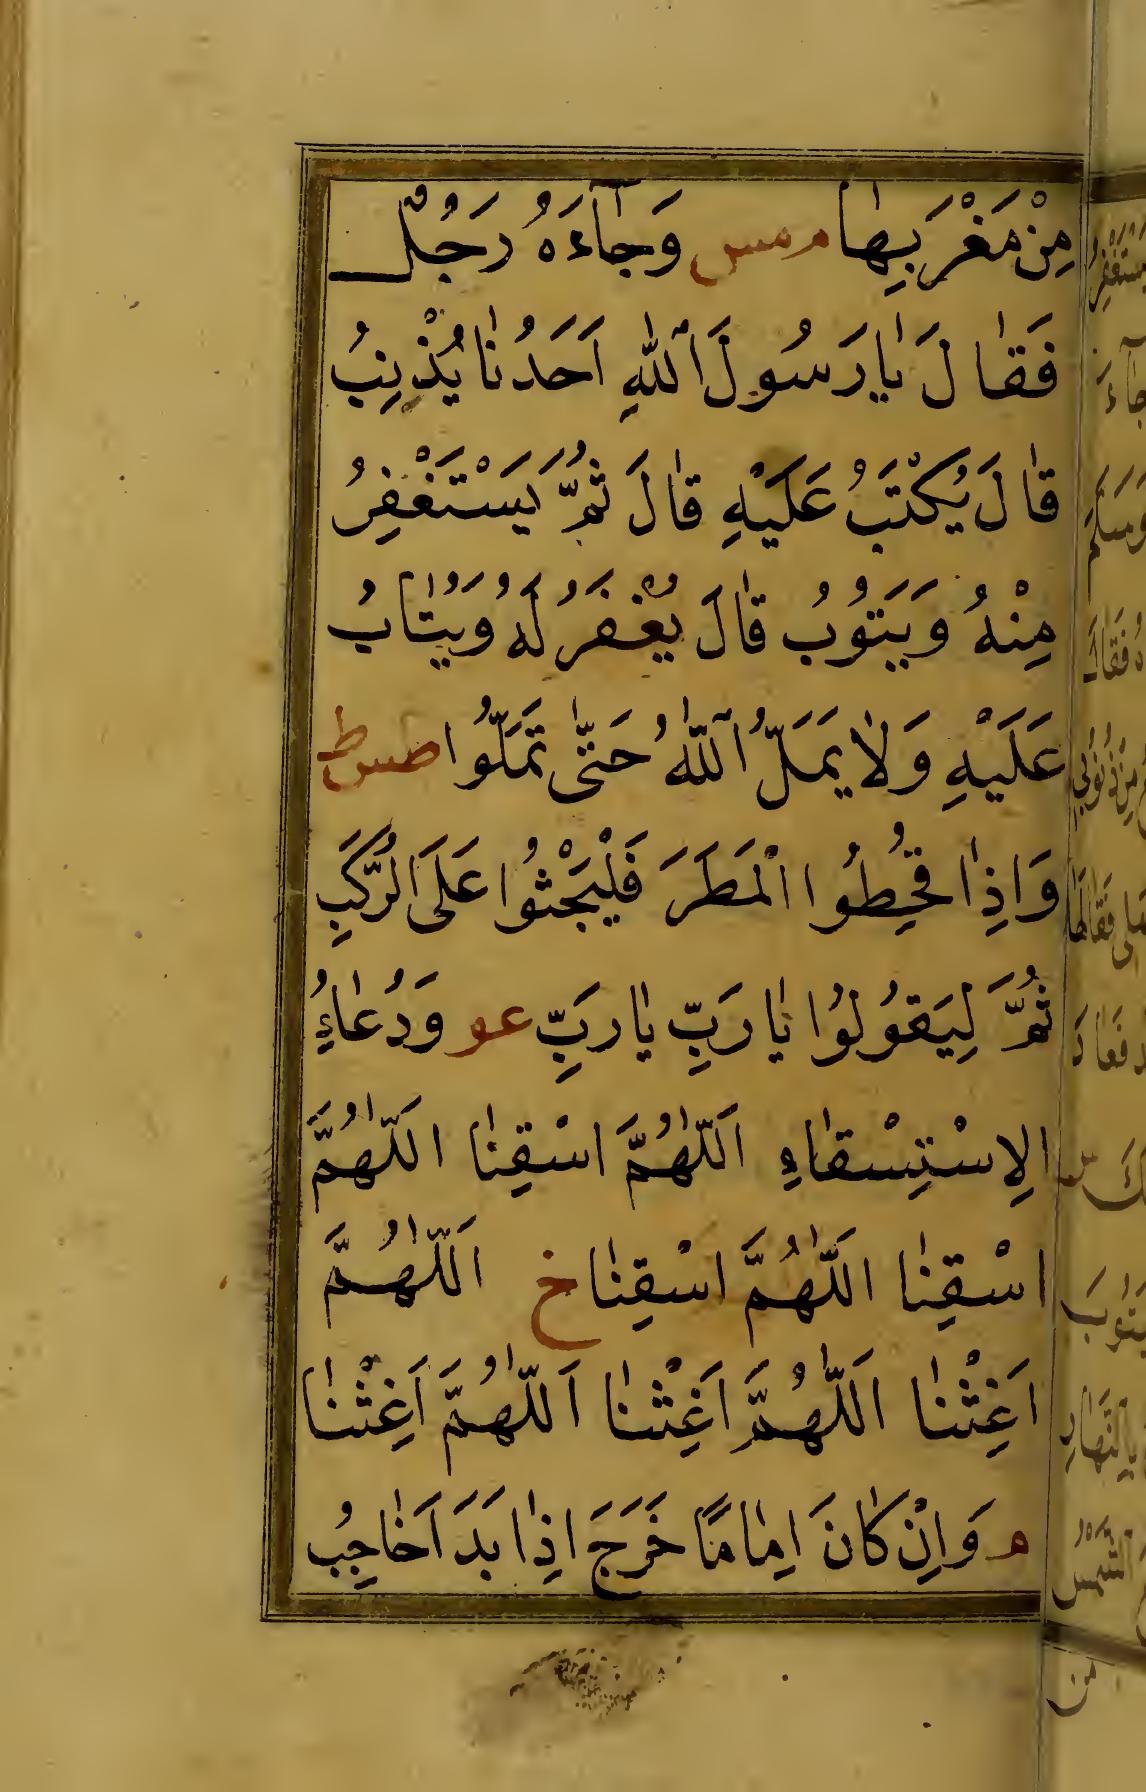 مِنْ مَغْرَبِهَا م مس وَجَآءَهُ رَجُلٌ
فَقَالَ يَا رَسُولَ ٱللّٰهِ اَحَدُنَا يُذْنِبُ
قَالَ يُكْتَبُ عَلَيْهِ قَالَ ثُمَّ يَسْتَغْفِرُ
مِنْهُ وَيَتُوبُ قَالَ يُغْفَرُ لَهُ وَيُتَابُ
عَلَيْهِ وَلَا يَمَلُّ ٱللّٰهُ حَتّٰى تَمَلُّوا طس ط
وَاِذَا قُحِطُوا الْمَطَرَ فَلْيَجْثُوا عَلَى الرُّكَبِ
ثُمَّ لِيَقُولُوا يَا رَبِّ يَا رَبِّ عو وَدُعَاءُ
الِاسْتِسْقَاءِ اَللّٰهُمَّ اسْقِنَا اللّٰهُمَّ
اسْقِنَا اللّٰهُمَّ اسْقِنَا خ اَللّٰهُمَّ
اَغِثْنَا اَللّٰهُمَّ اَغِثْنَا اَللّٰهُمَّ اَغِثْنَا
م وَاِنْ كَانَ اِمَامًا خَرَجَ اِذَا بَدَا حَاجِبُ